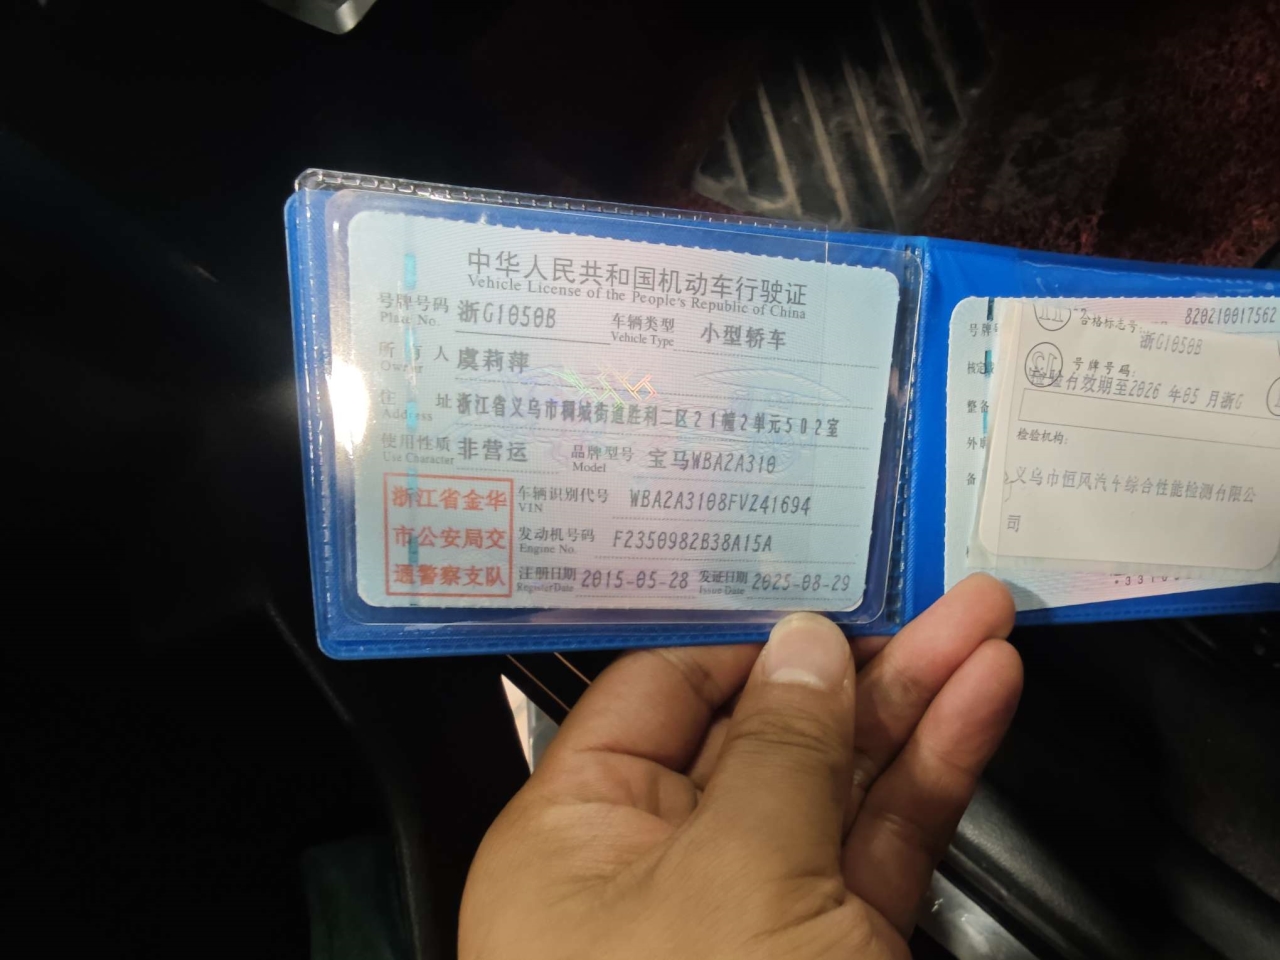 中华人民共和国机动车行驶证
Vehicle License of the People's Republic of China
号牌号码 浙G1050B 车辆类型 小型轿车
Plate No. Vehicle Type
所有人 虞莉萍
Owner
住址 浙江省义乌市稠城街道胜利二区21幢2单元502室
Address
使用性质 非营运 品牌型号 宝马WBA2A310
Use Character Model
浙江省金华
市公安局交
通警察支队
车辆识别代号 WBA2A3108FVZ41694
VIN
发动机号码 F2350982B38A15A
Engine No.
注册日期 2015-05-28 发证日期 2025-08-29
Register Date Issue Date
号牌
核定
整备
外廓
备
合格标志号 820210017562
浙G1050B
号牌号码:
检验有效期至2026 年05 月浙G
检验机构:
义乌市恒风汽车综合性能检测有限公
司